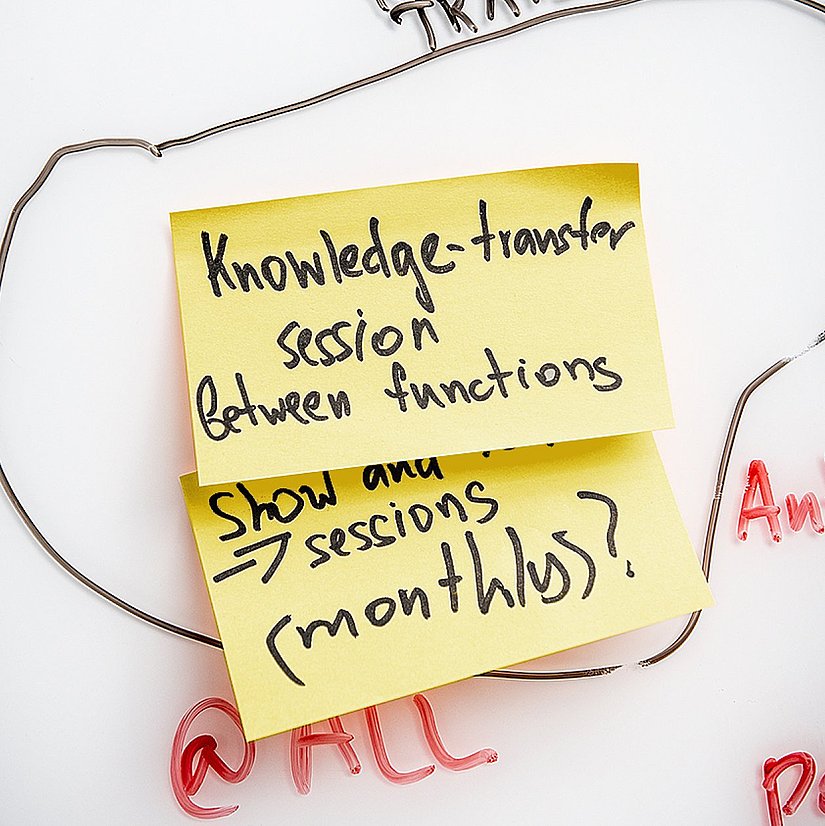 Knowledge-transfer
session
between functions
Show and
=> sessions
(monthly)?
@ALL